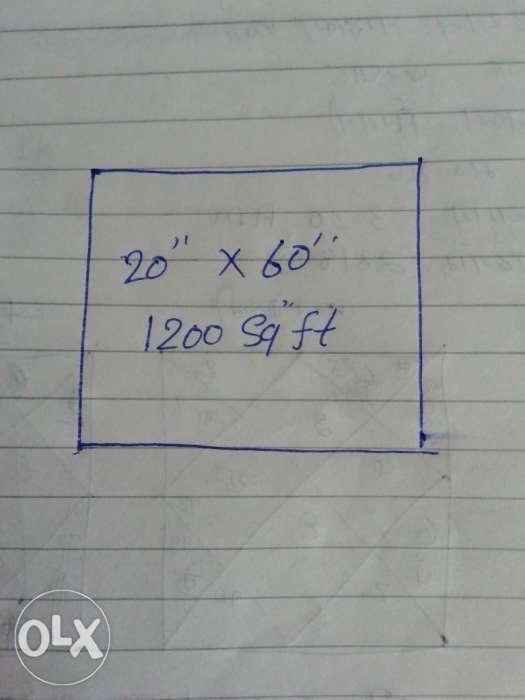 20" x 60"
1200 Sq" ft
OLX